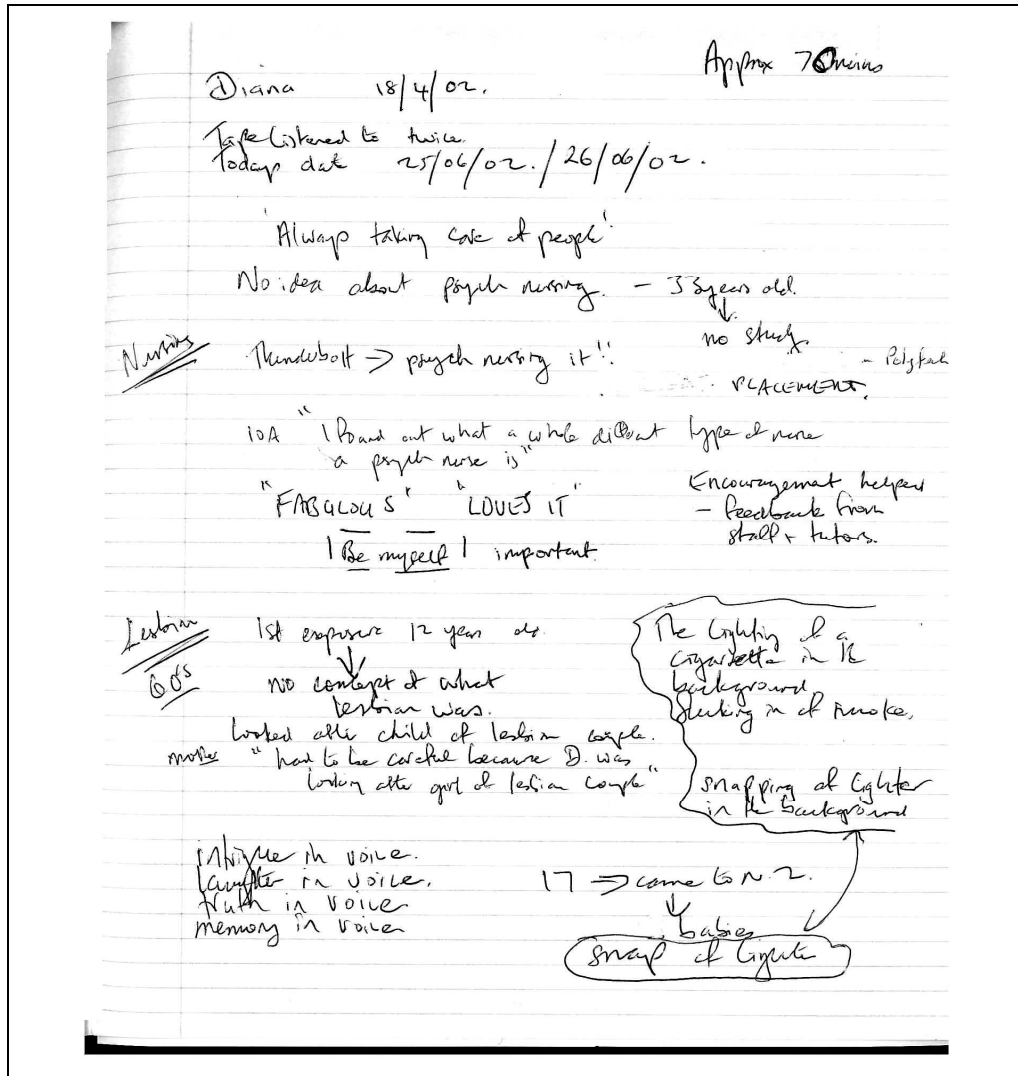 Approx 70mins
Diana 18/4/02.
Tape listened to twice.
Todays date 25/06/02. / 26/06/02.
'Always taking care of people'
No idea about psych nursing. - 33 years old.
no study
- Polytech
PLACEMENT.
Nursing
Thunderbolt → psych nursing it!!
"I found out what a whole different type of nurse
a psych nurse is"
"FABULOUS" "LOVES IT"
| Be myself | important
Encouragement helped
- feedback from
staff + tutors.
Lesbian
60's
1st exposure 12 years old
no concept of what
lesbian was.
Looked after child of lesbian couple.
mother "had to be careful because D. was
looking after girl of lesbian couple"
The lighting of a
cigarette in the
background
sucking in of smoke.
snapping of lighter
in the background
intrigue in voice.
laughter in voice.
truth in voice
memory in voice
17 ⇒ came to N.Z.
babies
snap of lighter